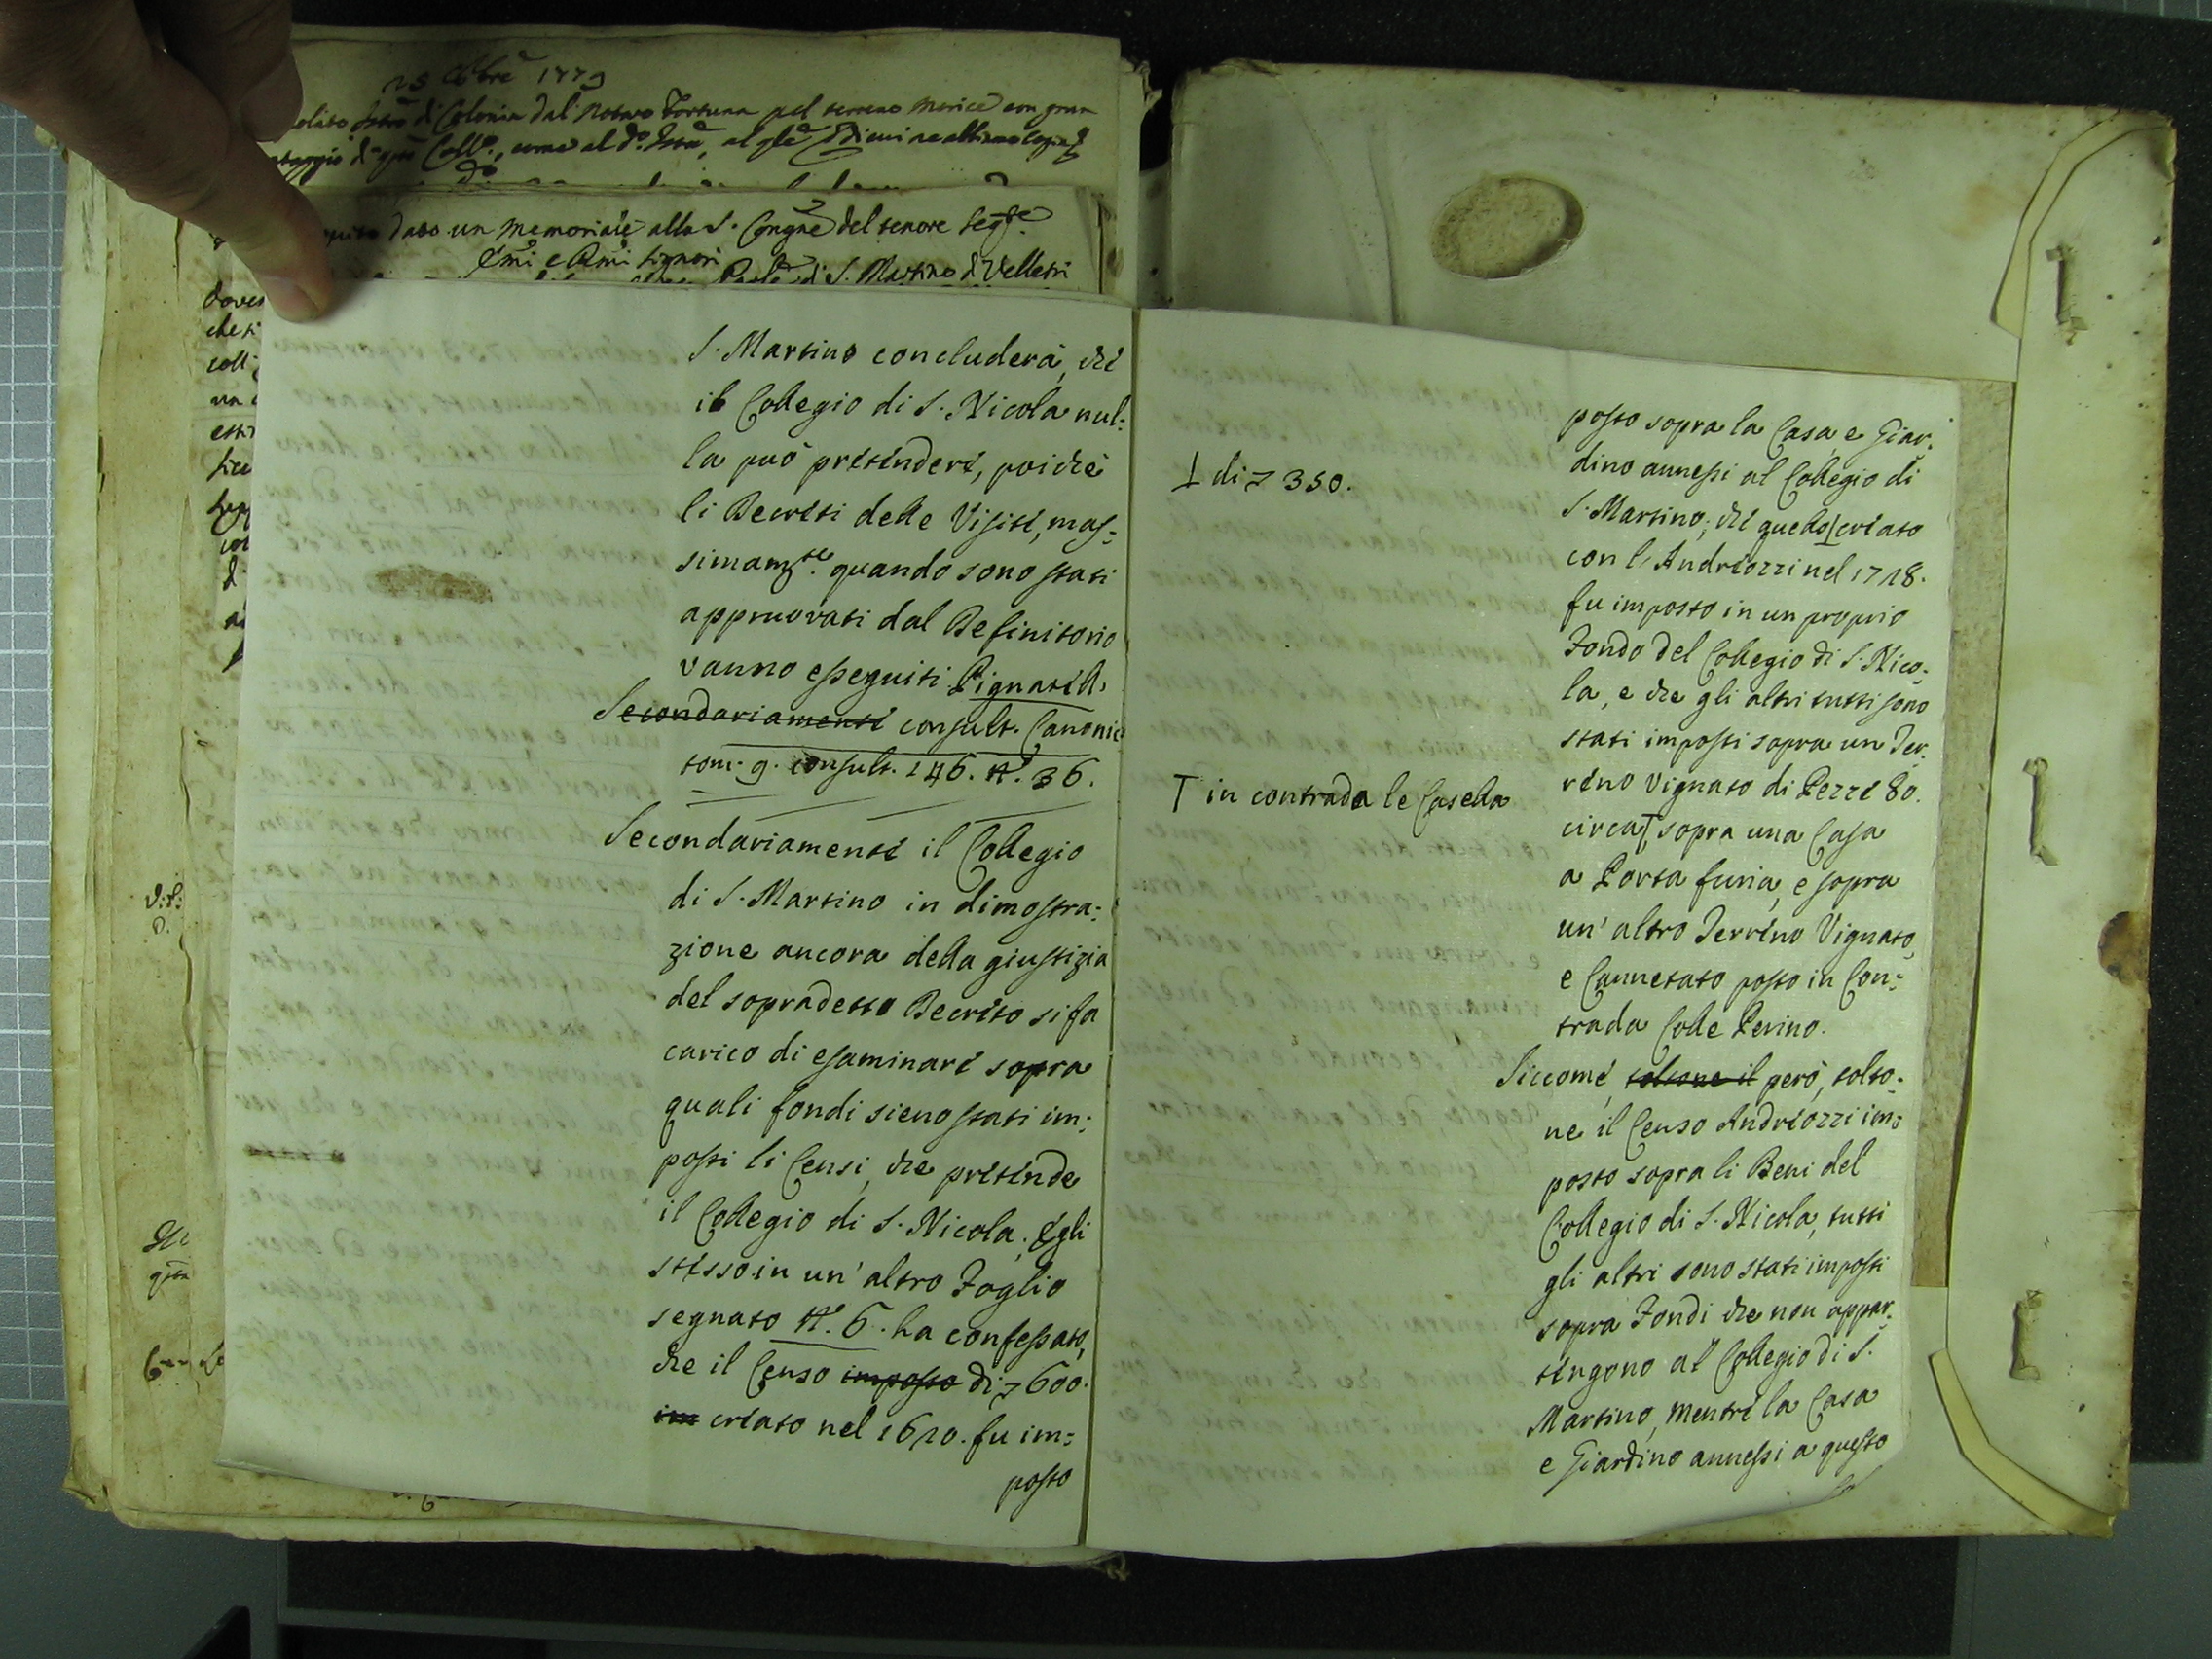 25 Obre 1779
di Colonia dal Notaro Fortuna pel terreno Morice con gran
come al do. Istro, al qle di cui ne abbiamo copia
dato un Memoriale alla S. Congne del tenore segte.
Emi e Rmi Signori
di S. Martino di Velletri
S. Martino concluderà, che
il Collegio di S. Nicola nul:
la può pretendere, poichè
li Decreti delle Visite, mas:
simamte. quando sono stati
appruovati dal Definitorio
vanno esseguiti. Pignatell.
Secondariamente consult. Canonic
tom. 9. consult. 146. N. 36.
Secondariamente il Collegio
di S. Martino in dimostra:
zione ancora della giustizia
del sopradetto Decreto si fa
carico di esaminare sopra
quali fondi sieno stati im:
posti li Censi, che pretende
il Collegio di S. Nicola. Egli
stesso in un' altro Foglio
segnato N. 6. ha confessato,
che il Censo imposto di 600.
im creato nel 1620. fu im:
posto
posto sopra la Casa, e Giar:
dino annessi al Collegio di
⊥ di 350.
S. Martino; che quello ⊥ creato
con l'Andreozzi nel 1728.
fu imposto in un proprio
Fondo del Collegio di S. Nico:
la, e che gli altri tutti sono
stati imposti sopra un Ter:
reno Vignato di Pezze 80.
T in contrada le Casella
circa T sopra una Casa
a Porta furia, e sopra
un' altro Terreno Vignato,
e Cannetato posto in Con:
trada Colle Perino.
Siccome, toltone il però, tolto:
ne il Censo Andreozzi im:
posto sopra li Beni del
Collegio di S. Nicola, tutti
gli altri sono stati imposti
sopra Fondi che non appar:
tengono al Collegio di S.
Martino, mentre la Casa
e Giardino annessi a questo